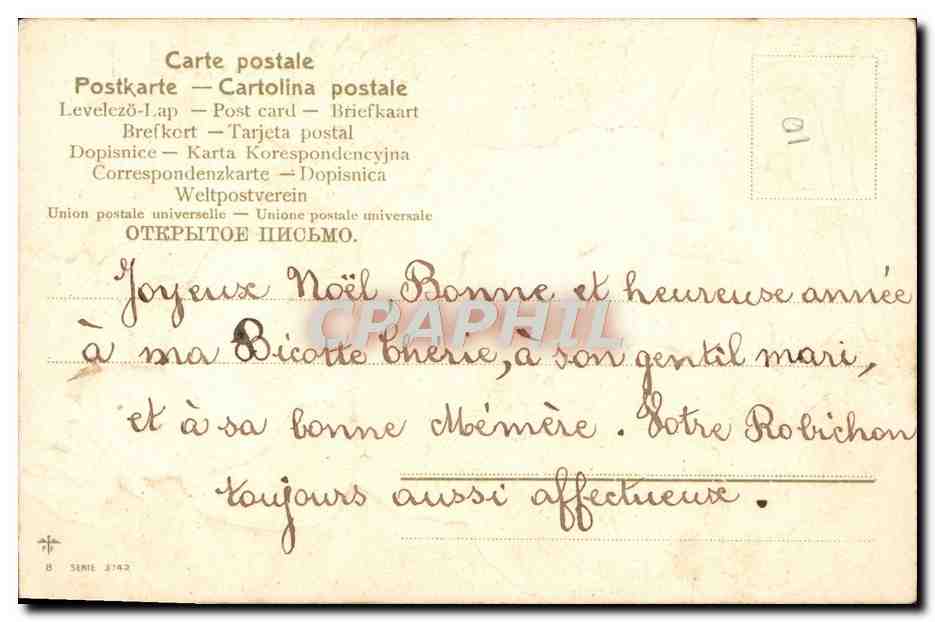 Carte postale
Postkarte — Cartolina postale
Levelező-Lap — Post card — Briefkaart
Brefkort — Tarjeta postal
Dopisnice — Karta Korespondencyjna
Correspondenzkarte — Dopisnica
Weltpostverein
Union postale universelle — Unione postale universale
ОТКРЫТОЕ ПИСЬМО.
01
Joyeux Noël, Bonne et heureuse année
CPAPHIL
à ma Bicotte chérie, à son gentil mari,
et à sa bonne Mémère. Votre Robichon
toujours aussi affectueux.
8 SERIE 3742